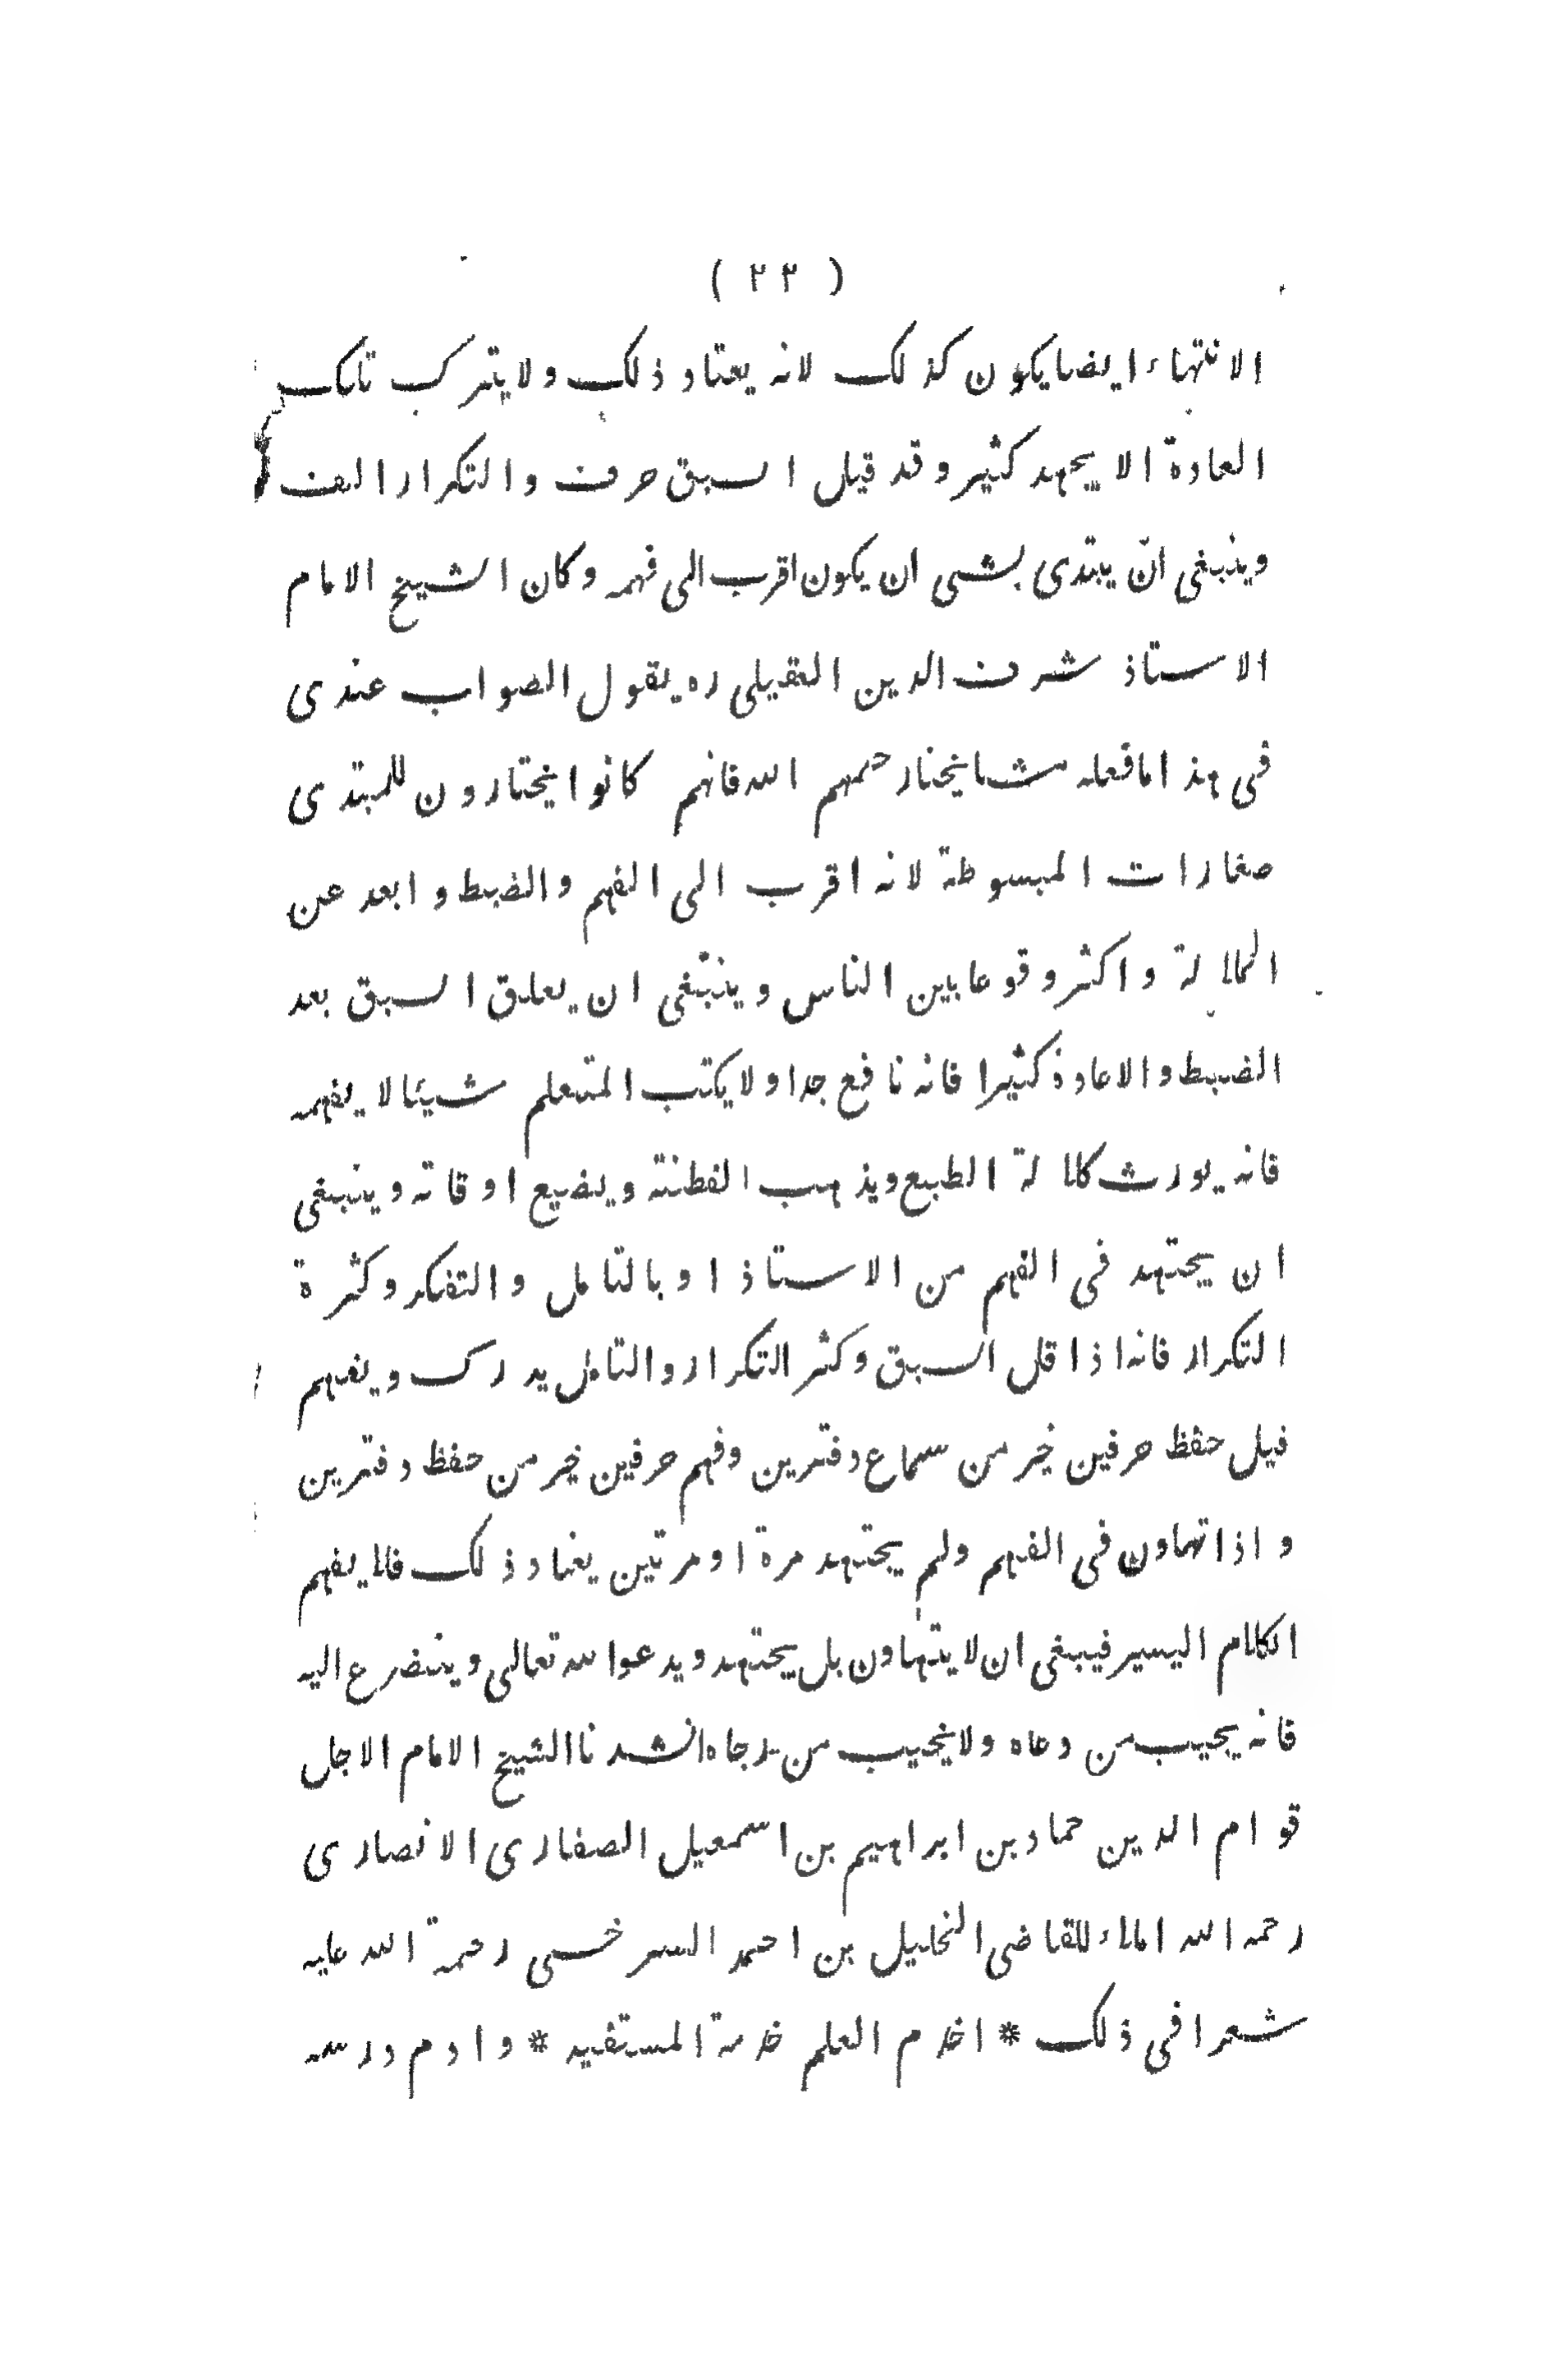 ( ٢٣ )
الانتهاء ايضا يكون كذلك لانه يعتاد ذلك ولا يترك تلك
العادة الا بجهد كثير وقد قيل السبق حرف والتكرار الف
وينبغى ان يبتدى بشى ان يكون اقرب الى فهمه وكان الشيخ الامام
الاستاذ شرف الدين العقيلى ره يقول الصواب عندى
فى هذا ما فعله مشايخنا رحمهم الله فانهم كانوا يختارون للمبتدى
صغارات المبسوطة لانه اقرب الى الفهم والضبط وابعد عن
الملالة واكثر وقوعا بين الناس وينبغى ان يعلق السبق بعد
الضبط والاعادة كثيرا فانه نافع جدا ولا يكتب المتعلم شيئا لا يفهمه
فانه يورث كلالة الطبع ويذهب الفطنة ويضيع اوقاته وينبغى
ان يجتهد فى الفهم من الاستاذ او بالتامل والتفكر وكثرة
التكرار فانه اذا قل السبق وكثر التكرار والتامل يدرك ويفهم
قيل حفظ حرفين خير من سماع دفترين وفهم حرفين خير من حفظ دفترين
واذا تهاون فى الفهم ولم يجتهد مرة او مرتين يعتاد ذلك فلا يفهم
الكلام اليسير فيبغى ان لا يتهاون بل يجتهد ويدعو الله تعالى ويتضرع اليه
فانه يجيب من دعاه ولا يخيب من رجاه انشدنا الشيخ الامام الاجل
قوام الدين حماد بن ابراهيم بن اسمعيل الصفارى الانصارى
رحمه الله املاء للقاضى الخليل بن احمد السرخسى رحمة الله عليه
شعرا فى ذلك * اخدم العلم خدمة المستفيد * وادم درسه